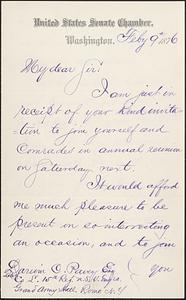 United States Senate Chamber.
Washington. Feby 9th 1876
My dear Sir:
I am just in
receipt of your kind invita-
tion to join yourself and
Comrades in annual reunion
on Saturday next.
It would afford
me much pleasure to be
present on so interesting
an occasion, and to join
C. Esq you
15th Regt N.Y. Engrs.
Grand Army Hall, Rome N.Y.